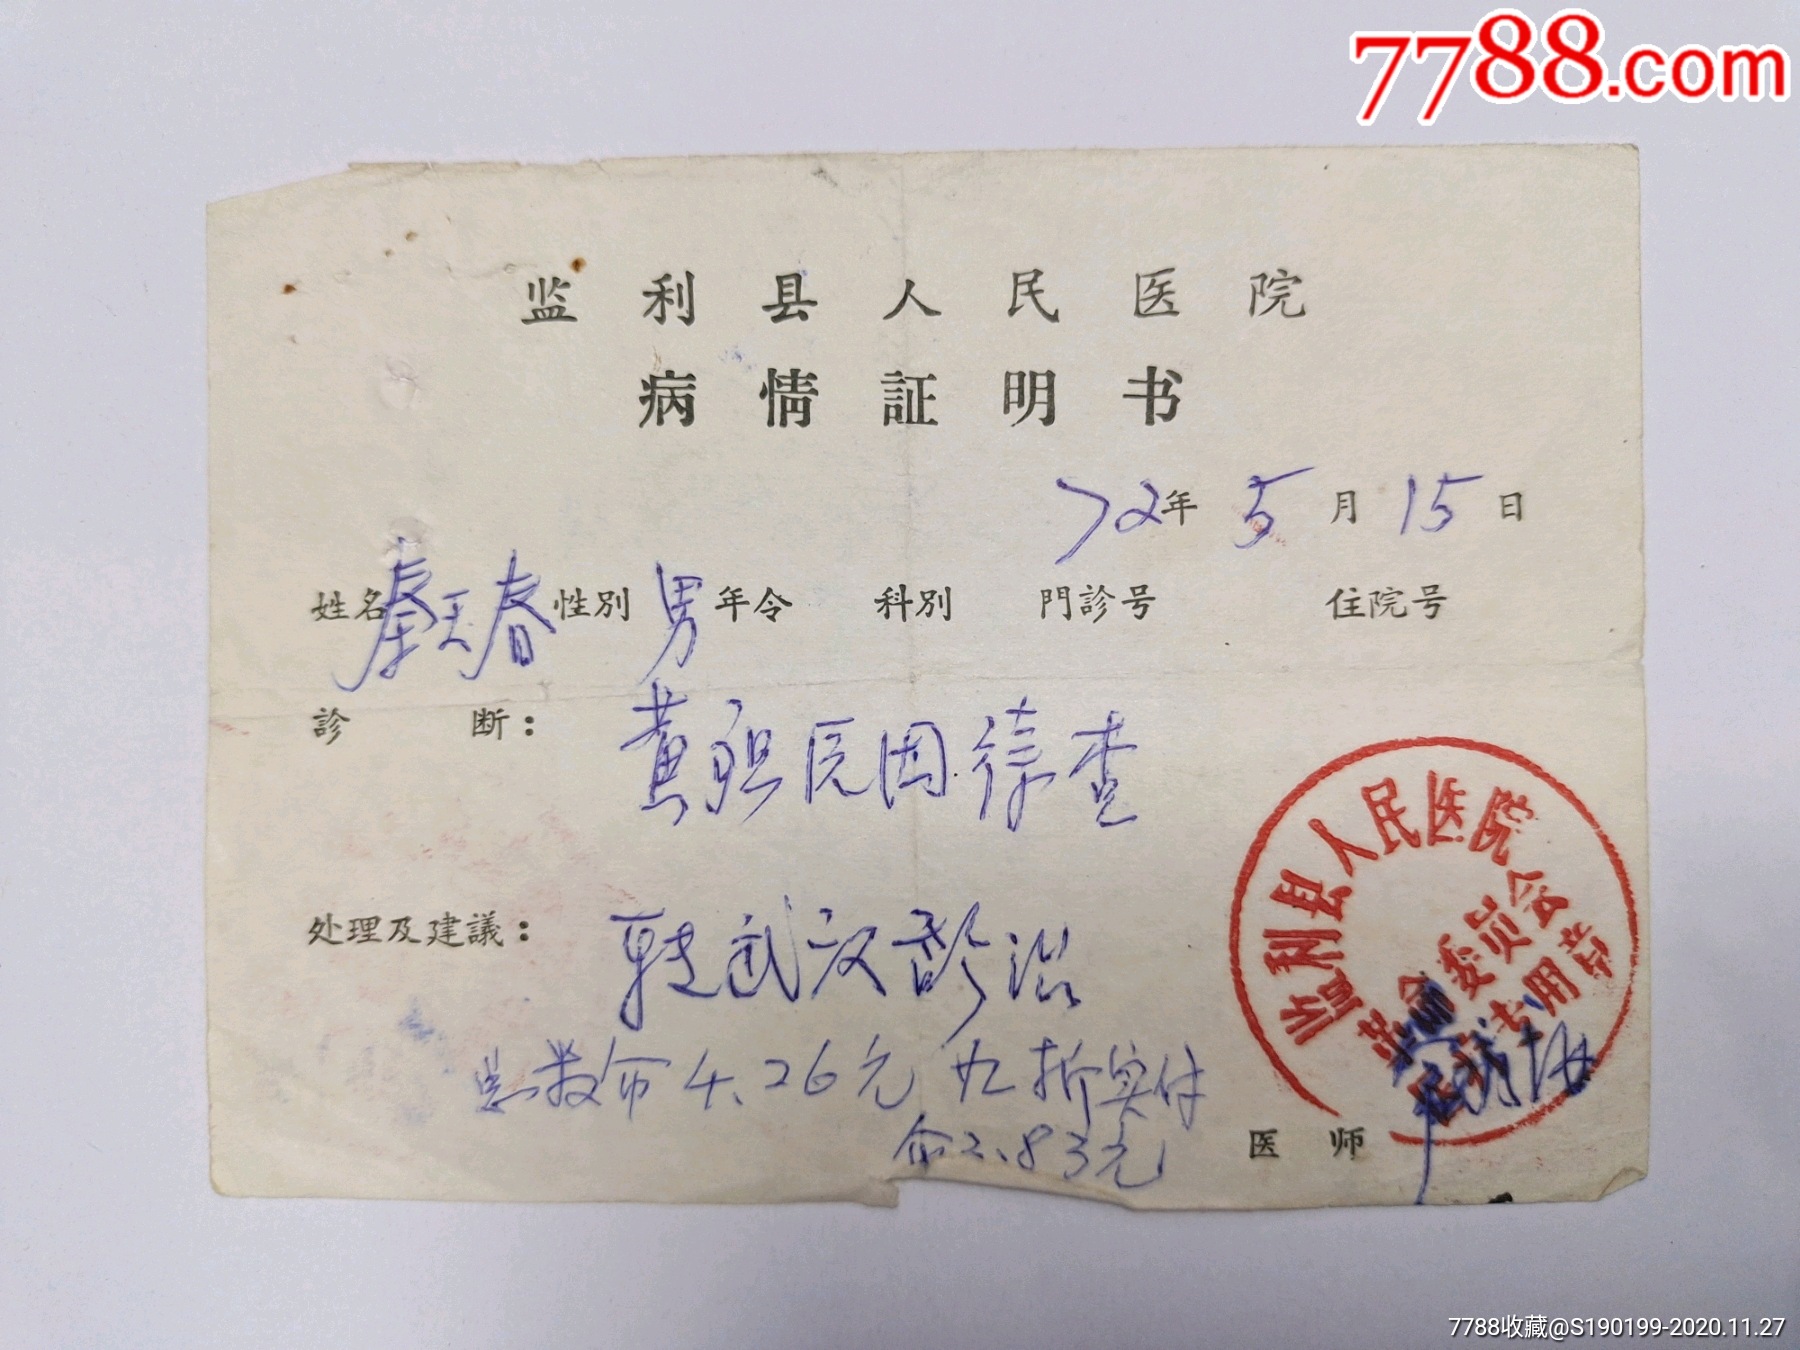 7788.com
监利县人民医院
病情証明书
72年5月15日
姓名秦天春性别男年令 科别 門診号 住院号
診断：黄疸原因待查
处理及建議：转武汉诊治
4.26元 九折实付
2.83元
医师
监利县人民医院
革命委员会
专用章
7788收藏@S190199-2020.11.27